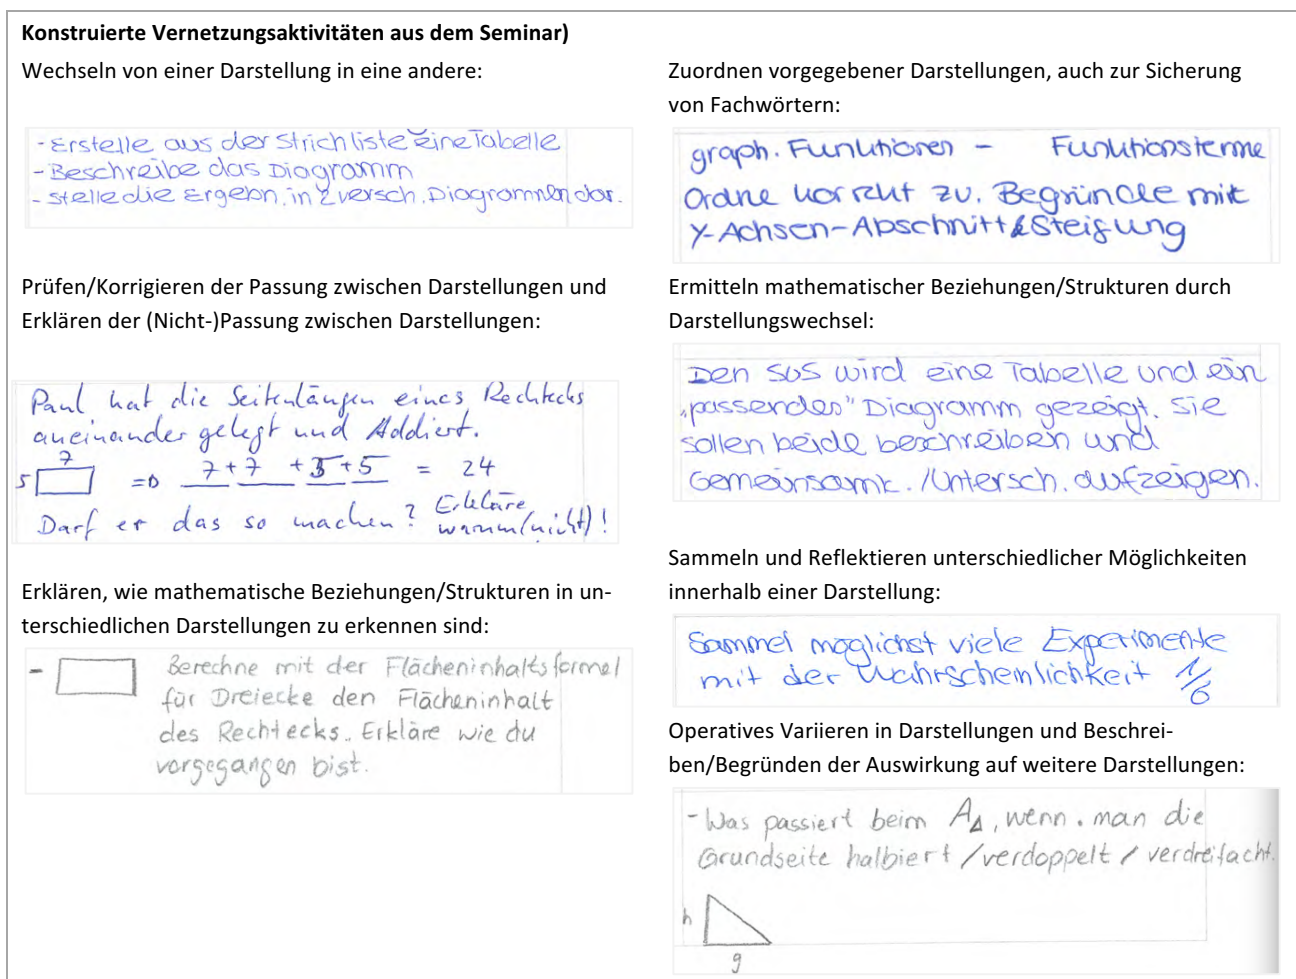 Konstruierte Vernetzungsaktivitäten aus dem Seminar)
Wechseln von einer Darstellung in eine andere:
- Erstelle aus der Strichliste eine Tabelle
- Beschreibe das Diagramm
- stelle die Ergebn. in 2 versch. Diagrammen dar.
Prüfen/Korrigieren der Passung zwischen Darstellungen und
Erklären der (Nicht-)Passung zwischen Darstellungen:
Paul hat die Seitenlängen eines Rechtecks
aneinander gelegt und Addiert.
7
5 => 7+7 +5+5 = 24
Darf er das so machen? Erkläre
warum(nicht)!
Erklären, wie mathematische Beziehungen/Strukturen in un-
terschiedlichen Darstellungen zu erkennen sind:
- Berechne mit der Flächeninhaltsformel
für Dreiecke den Flächeninhalt
des Rechtecks. Erkläre wie du
vorgegangen bist.
Zuordnen vorgegebener Darstellungen, auch zur Sicherung
von Fachwörtern:
graph. Funktionen – Funktionsterme
Ordne korrekt zu. Begründe mit
y-Achsen-Abschnitt & Steigung
Ermitteln mathematischer Beziehungen/Strukturen durch
Darstellungswechsel:
Den SuS wird eine Tabelle und ein
„passendes" Diagramm gezeigt. Sie
sollen beide beschreiben und
Gemeinsamk./Untersch. aufzeigen.
Sammeln und Reflektieren unterschiedlicher Möglichkeiten
innerhalb einer Darstellung:
Sammel möglichst viele Experimente
mit der Wahrscheinlichkeit 1/6
Operatives Variieren in Darstellungen und Beschrei-
ben/Begründen der Auswirkung auf weitere Darstellungen:
- Was passiert beim A△, wenn man die
Grundseite halbiert / verdoppelt / verdreifacht.
h
g